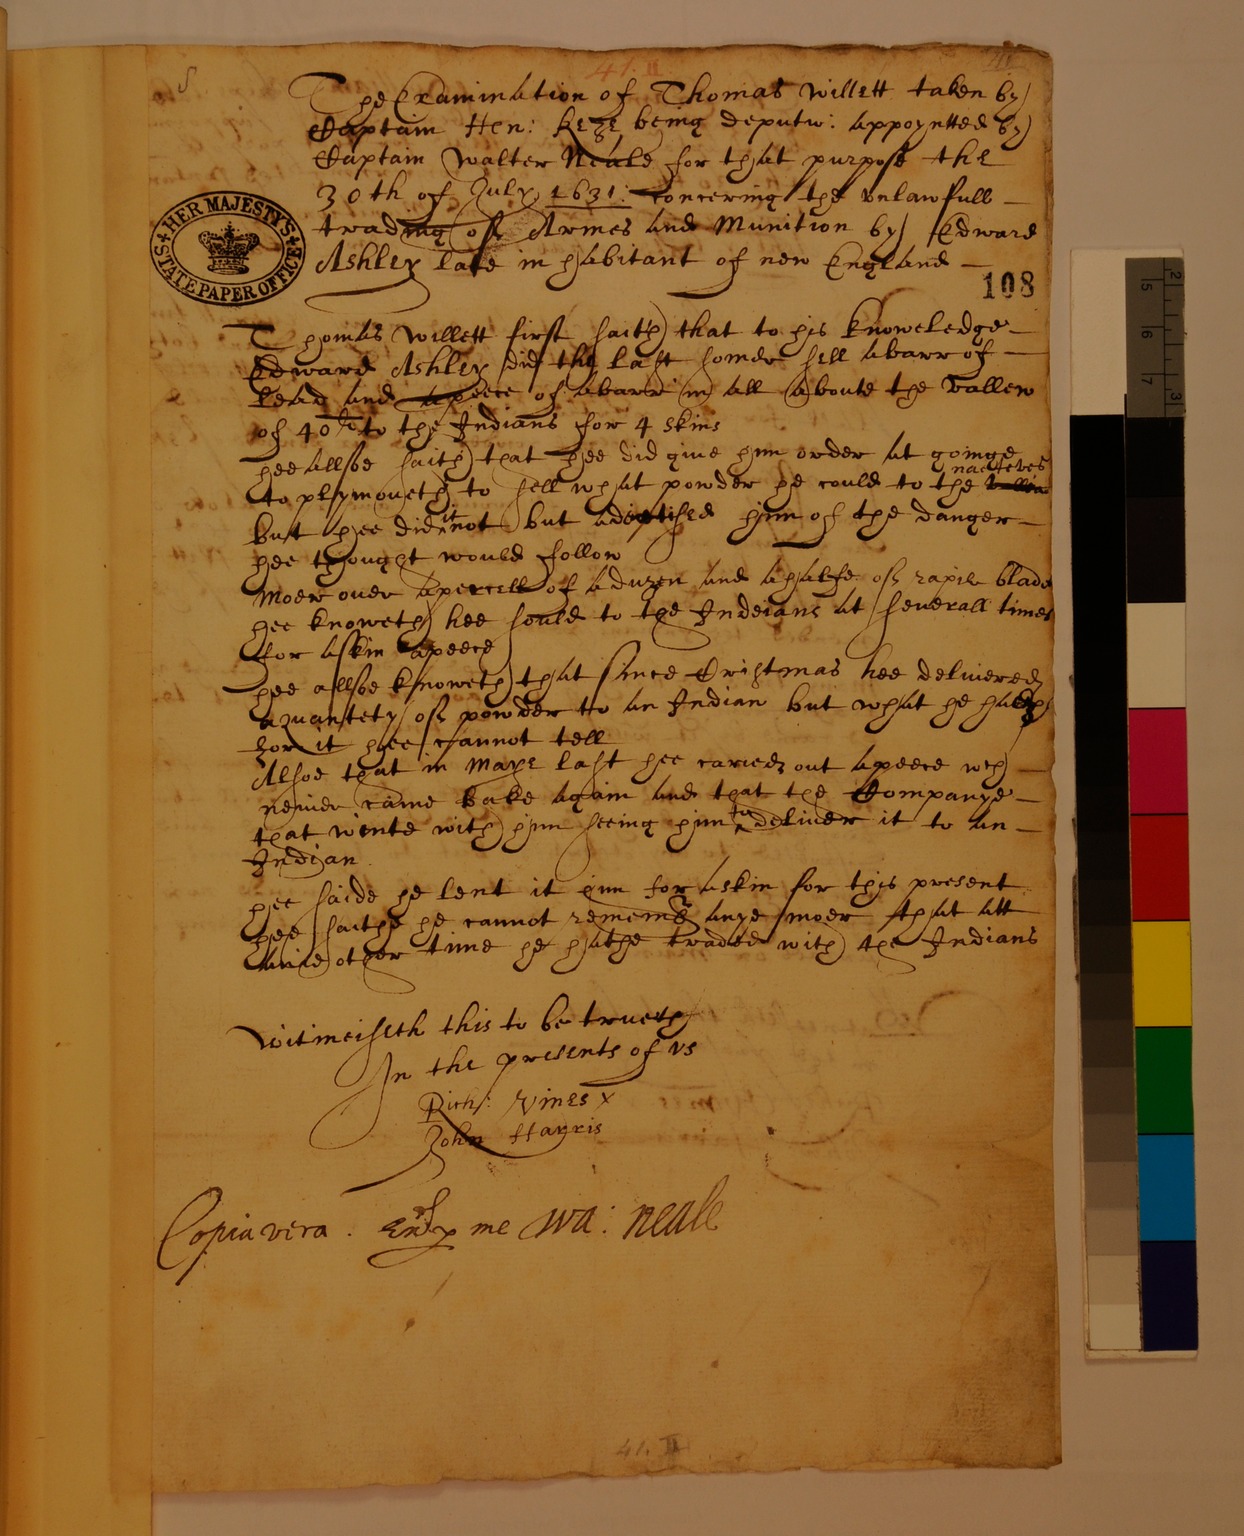 41. II
The Examination of Thomas Willett taken by
Captain Hen: Keye being deputw: appoyntted by
Captain Walter Neale for that purpose the
30th of July 1631: concering the vnlawfull
trading off Armes and Munition by Edward
Ashley late inhabitant of new England
HER MAJESTY'S STATE PAPER OFFICE
108
Thomas Willett first saith that to his knowledge
Edward Ashley did the last somer sell a barr of
Lead and a peece of a barr in all aboute the vallew
of 40li to the Indians for 4 skins
hee allsoe saith that hee did give him order at goinge
to plymoueth to sell what powder he could to the naeteves
but hee did it not but advertised him of the danger
hee thought would follow
Moer over a percell of a duzen and a halfe off rapier blades
hee knoweth hee sould to the Indeians at severall times
for a skin a peece
hee allsoe knoweth that since Cristmas hee delivered
a quantety off powder to an Indian but what he hath
for it hee cannot tell
Alsoe that in Maye last hee caried out a peece wch
never came bake again and that the Companye
that wente with him seeing him to deliver it to an
Indian
hee saide he lent it him for a skin for this present
hee saithe he cannot rememb anye moer that att
anie other time he hathe traded with the Indians
Witneisseth this to be trueth
In the presents of vs
Rich: Vines x
John Harris
Copia vera. Exd p me Wa: Neale
41. II